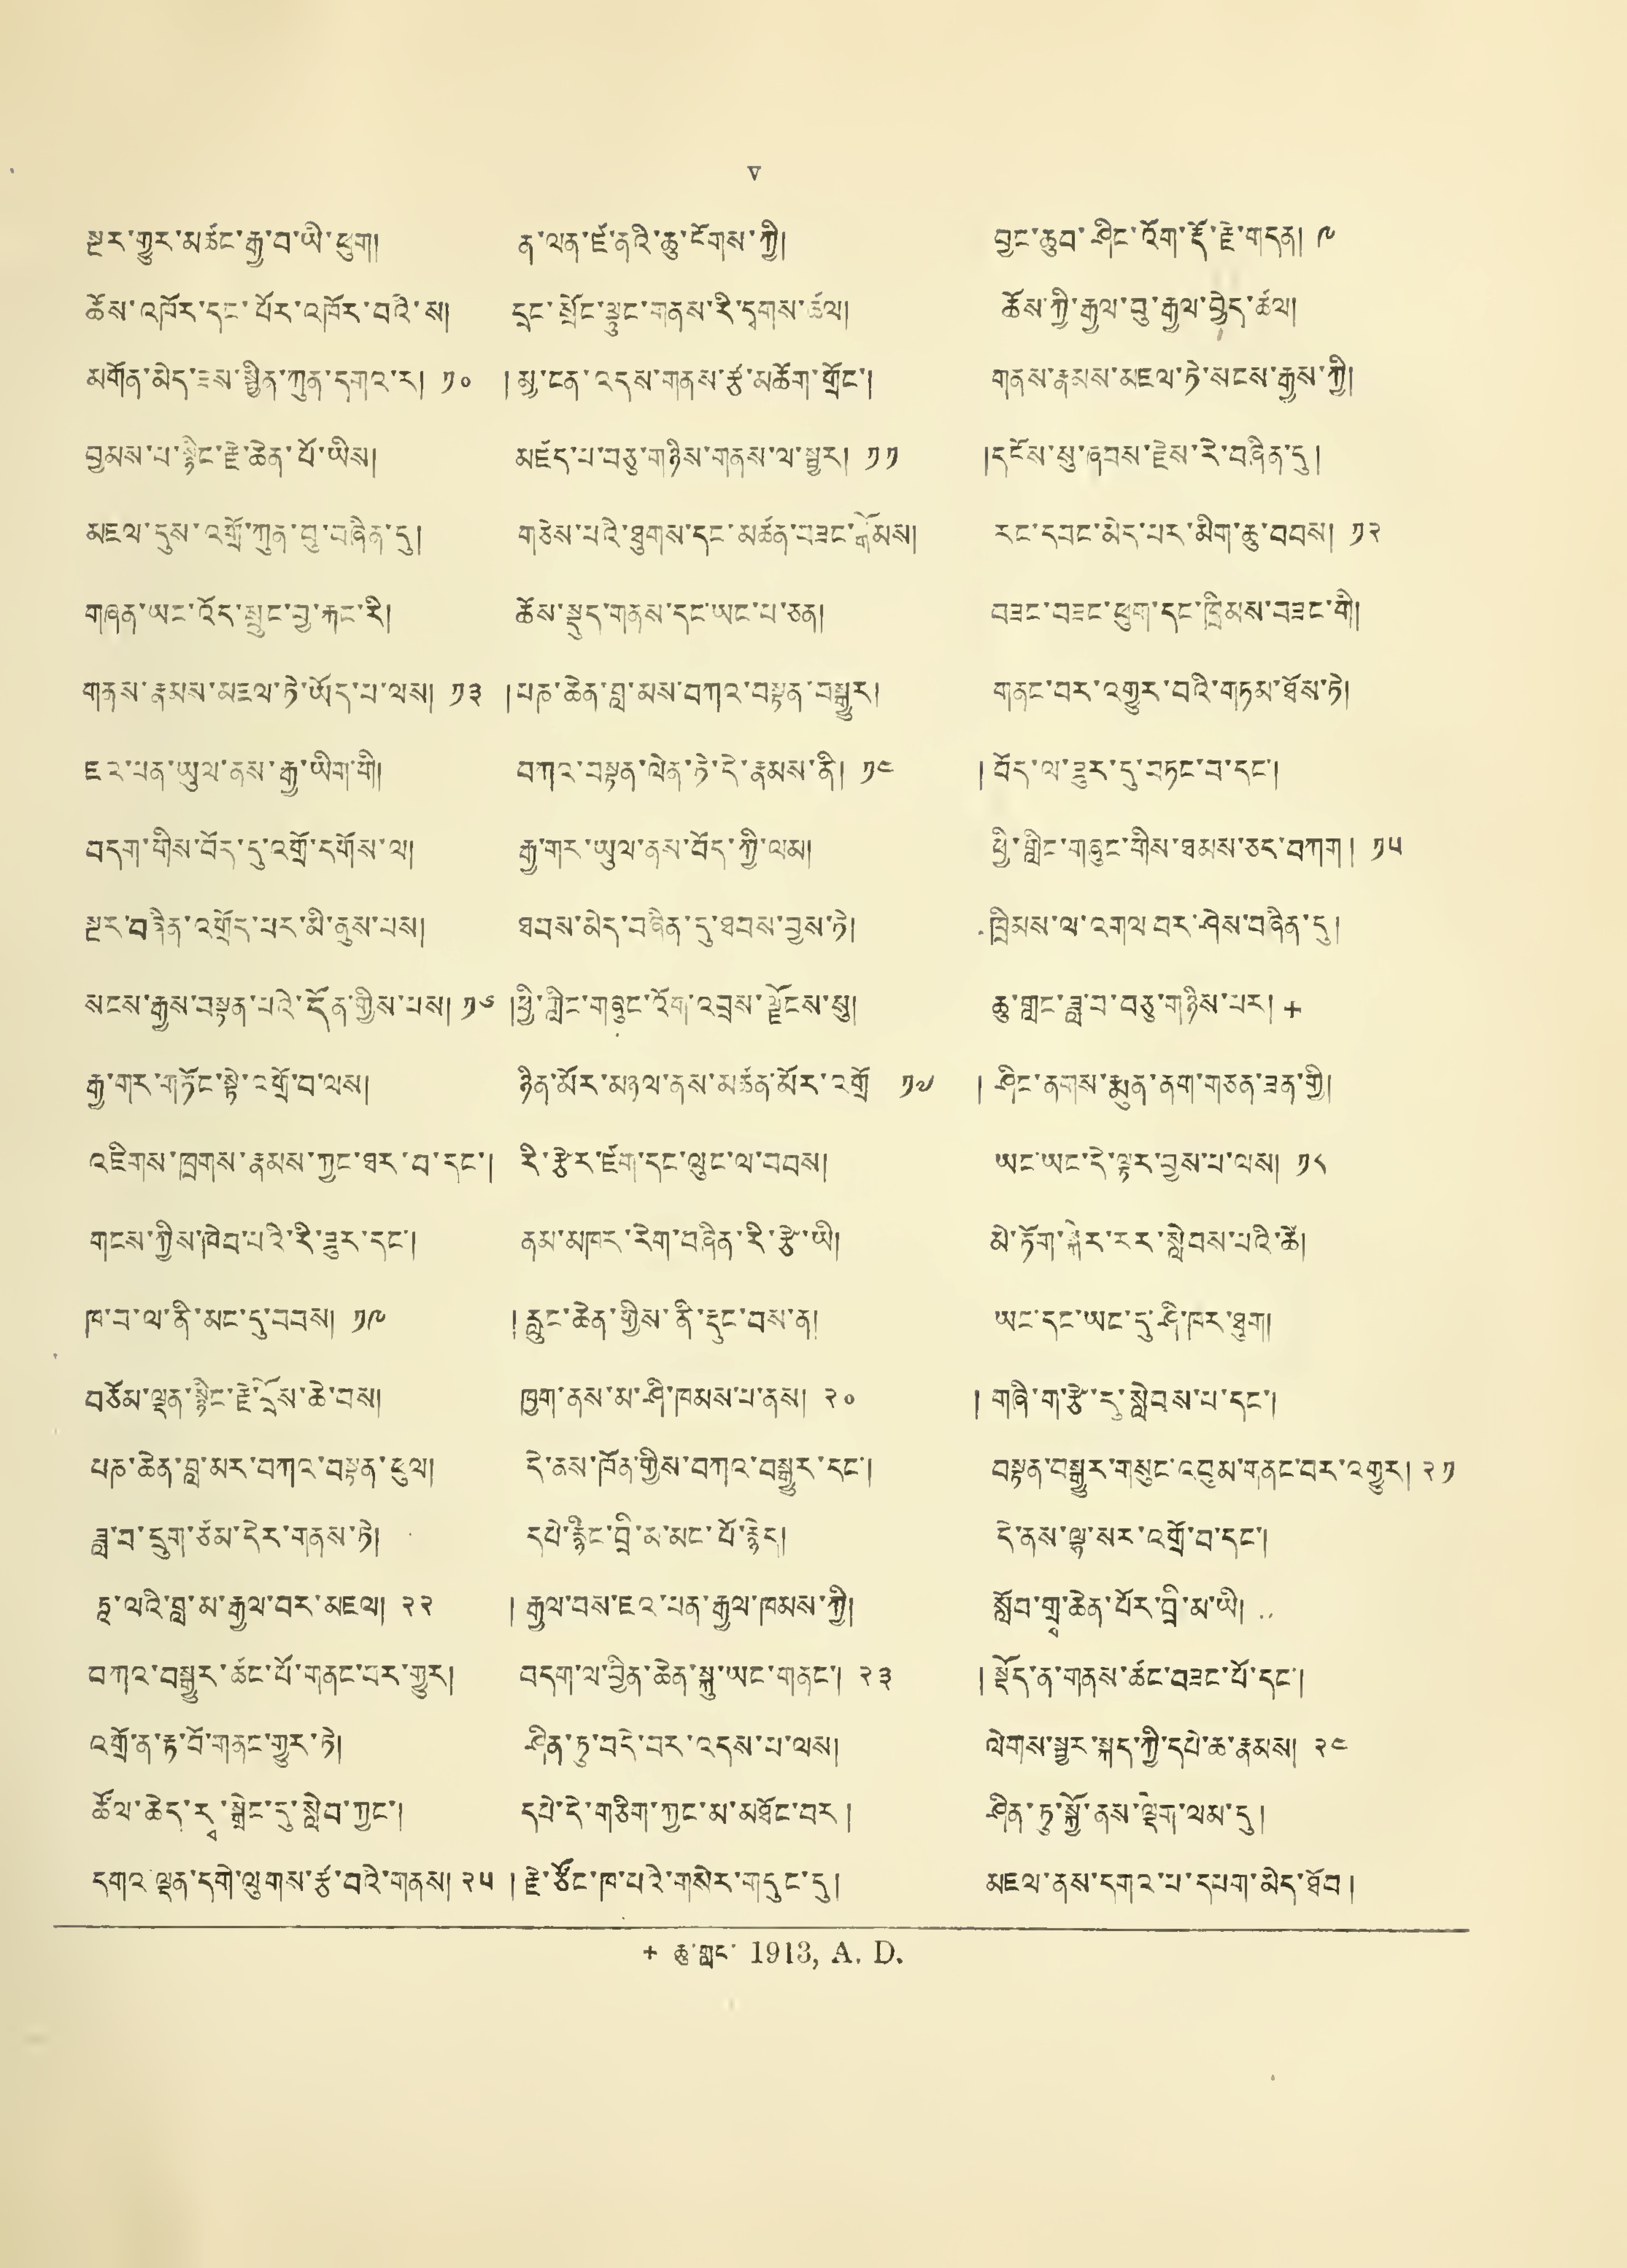 v
སྔར་གྱུར་མཚོང་རྒྱ་བ་ཡི་ཕུག། ན་ལན་ཛོ་ནའི་ཆུ་ངོགས་ཀྱི། བྱང་ཆུབ་ཤིང་འོག་རྡོ་རྗེ་གདན། ༩
ཆོས་འཁོར་དང་པོར་འཁོར་བའི་ས། དྲང་སྲོང་ལྷུང་གནས་རི་དྭགས་ཚལ། ཆོས་ཀྱི་རྒྱལ་བུ་རྒྱལ་བྱེད་ཚལ།
མགོན་མེད་ཟས་སྦྱིན་ཀུན་དགའ་ར། ༡༠ །མྱ་ངན་འདས་གནས་རྩྭ་མཆོག་གྲོང་། གནས་རྣམས་མཇལ་ཏེ་སངས་རྒྱས་ཀྱི།
བྱམས་པ་སྙིང་རྗེ་ཆེན་པོ་ཡིས། མཛོད་པ་བཅུ་གཉིས་གནས་ལ་སྦྱར། ༡༡ །དངོས་སུ་ཞབས་རྗེས་རེ་བཞིན་དུ།
མཇལ་དུས་འགྲོ་ཀུན་བུ་བཞིན་དུ། གཅེས་པའི་ཐུགས་དང་མཚན་བཟང་རྫོམས། རང་དབང་མེད་པར་མིག་ཆུ་བབས། ༡༢
གཞན་ཡང་འོད་སྲུང་བྱ་རྐང་རི། ཆོས་སྡུད་གནས་དང་ཡང་པ་ཅན། བཟང་བཟང་ཕུག་དང་ཁྲིམས་བཟང་གི།
གནས་རྣམས་མཇལ་ཏེ་ཡོད་པ་ལས། ༡༣ །པཎ་ཆེན་བླ་མས་བཀའ་བསྟན་བསྒྱུར། གནང་བར་འགྱུར་བའི་གཏམ་ཐོས་ཏེ།
ཇར་པན་ཡུལ་ནས་རྒྱ་ཡིག་གི། བཀའ་བསྟན་ལེན་ཏེ་དེ་རྣམས་ནི། ༡༤ །བོད་ལ་ཟུར་དུ་བཏང་བ་དང་།
བདག་གིས་བོད་དུ་འགྲོ་དགོས་ལ། རྒྱ་གར་ཡུལ་ནས་བོད་ཀྱི་ལམ། ཕྱི་གླིང་གཞུང་གིས་ཐམས་ཅད་བཀག། ༡༥
སྔར་བཞིན་འགྲོད་པར་མི་ནུས་པས། ཐབས་མེད་བཞིན་དུ་ཐབས་བྱས་ཏེ། ཁྲིམས་ལ་འགལ་བར་ཤེས་བཞིན་དུ།
སངས་རྒྱས་བསྟན་པའི་དོན་གྱིས་པས། ༡༦ །ཕྱི་གླིང་གཞུང་འོག་འབྲས་ལྗོངས་སུ། ཆུ་གླང་ཟླ་བ་བཅུ་གཉིས་པར། +
རྒྱ་གར་གཏོང་སྟེ་འགྲོ་བ་ལས། ཉིན་མོར་མཉལ་ནས་མཚན་མོར་འགྲོ ༡༧ །ཤིང་ནགས་མུན་ནག་གཅན་ཟན་གྱི།
འཇིགས་ཁྲགས་རྣམས་ཀྱང་ཐར་བ་དང་། རི་རྩེར་ཛོག་དང་ལུང་ལ་བབས། ཡང་ཡང་དེ་ལྟར་བྱས་པ་ལས། ༡༨
གངས་ཀྱིས་ཁེབ་པའི་རི་ཟུར་དང་། ནམ་མཁར་རེག་བཞིན་རི་རྩེ་ཡི། མེ་ཏོག་རར་སླེབས་པའི་ཚེ།
ཁ་བ་ལ་ནི་མང་དུ་བབས། ༡༩ །རླུང་ཆེན་གྱིས་ནི་རྡུང་བས་ན། ཡང་དང་ཡང་དུ་ཤི་ཁར་ཐུག།
བཅོམ་ལྡན་སྙིང་རྗེ་དྲོས་ཆེ་བས། ཁྱག་ནས་མ་ཤི་ཁམས་པ་ནས། ༢༠ །གཞི་ག་རྩེ་རུ་སླེབས་པ་དང་།
པཎ་ཆེན་བླ་མར་བཀའ་བསྟན་ཕུལ། དེ་ནས་ཁོན་གྱིས་བཀའ་བསྒྱུར་དང་། བསྟན་བསྒྱུར་གསུང་འབུམ་གནང་བར་འགྱུར། ༢༡
ཟླ་བ་དྲུག་ཙམ་དེར་གནས་ཏེ། དཔེ་རྙིང་བྲི་མ་མང་པོ་རྙེད། དེ་ནས་ལྷ་སར་འགྲོ་བ་དང་།
ཏཱ་ལའི་བླ་མ་རྒྱལ་བར་མཇལ། ༢༢ །རྒྱལ་བས་ཇར་པན་རྒྱལ་ཁམས་ཀྱི། སློབ་གྲྭ་ཆེན་པོར་བྲི་མ་ཡི།
བཀའ་བསྒྱུར་ཚང་པོ་གནང་བར་གྱུར། བདག་ལ་བྱིན་ཆེན་སྐུ་ཡང་གནང་། ༢༣ །སྡོད་ན་གནས་ཚང་བཟང་པོ་དང་།
འགྲོ་ན་རྟ་བོ་གནང་གྱུར་ཏེ། ཤིན་ཏུ་བདེ་བར་འདས་པ་ལས། ལེགས་སྦྱར་སྐད་ཀྱི་དཔེ་ཆ་རྣམས། ༢༤
ཚོལ་ཆེད་རྭ་སྒྲེང་དུ་སླེབ་ཀྱང་། དཔེ་དེ་གཅིག་ཀྱང་མ་མཐོང་བར། ཤིན་ཏུ་སྐྱོ་ནས་ལྡོག་ལམ་དུ།
དགའ་ལྡན་དགེ་ལུགས་རྩ་བའི་གནས། ༢༥ །རྗེ་ཙོང་ཁ་པའི་གསེར་གདུང་དུ། མཇལ་ནས་དགའ་བ་དཔག་མེད་ཐོབ།
+ ཆུ་གླང་ 1913, A. D.